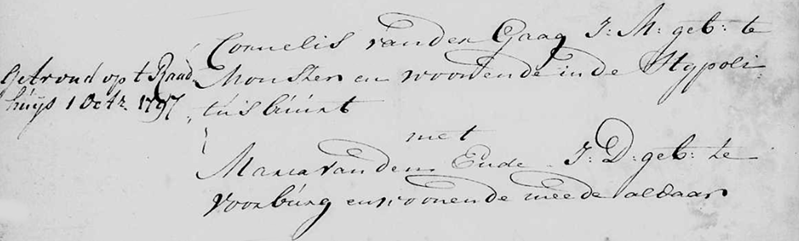 Getroud op t Raad
huijs 1 Octr. 1797.
Cornelis van den Gaag J: M: geb: te
Monster en woonende in de Hypoli
tusbuurt
met
Maria van den Ende J: D: geb: te
Voorburg en woonende meede aldaar